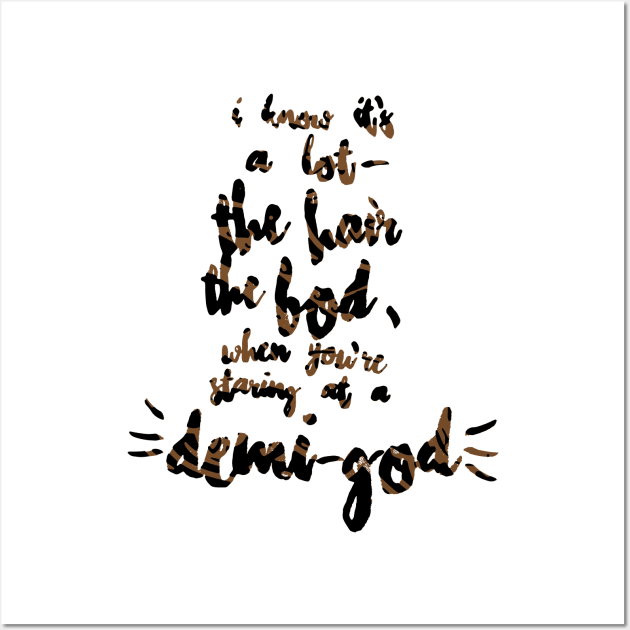 i know it's
a lot-
the hair
the bod,
when you're
staring at a
demi-god